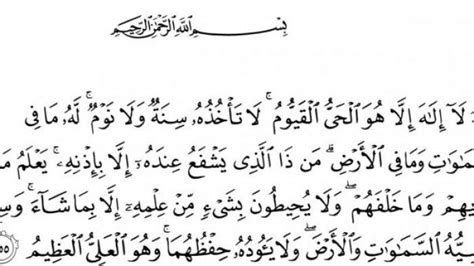 بِسْمِ ٱللَّهِ ٱلرَّحْمَٰنِ ٱلرَّحِيمِ
لَآ إِلَٰهَ إِلَّا هُوَ ٱلْحَىُّ ٱلْقَيُّومُ ۚ لَا تَأْخُذُهُۥ سِنَةٌ وَلَا نَوْمٌ ۚ لَّهُۥ مَا فِى
سَّمَٰوَٰتِ وَمَا فِى ٱلْأَرْضِ ۗ مَن ذَا ٱلَّذِى يَشْفَعُ عِندَهُۥٓ إِلَّا بِإِذْنِهِۦ ۚ يَعْلَمُ مَا
دِيهِمْ وَمَا خَلْفَهُمْ ۖ وَلَا يُحِيطُونَ بِشَىْءٍ مِّنْ عِلْمِهِۦٓ إِلَّا بِمَا شَآءَ ۚ وَسِ
سِيُّهُ ٱلسَّمَٰوَٰتِ وَٱلْأَرْضَ ۖ وَلَا يَـُٔودُهُۥ حِفْظُهُمَا ۚ وَهُوَ ٱلْعَلِىُّ ٱلْعَظِيمُ